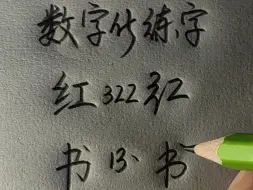 数字化练字
红322红
书13·书